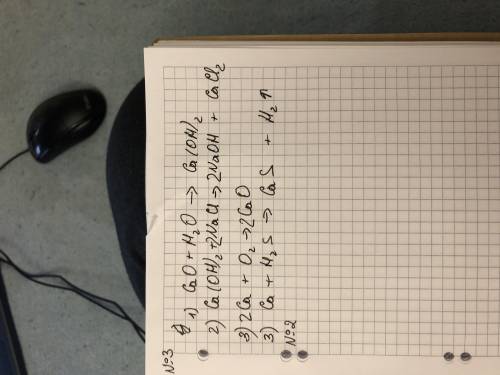 №3
1) CaO + H₂O → Ca(OH)₂
2) Ca(OH)₂ + 2NaCl → 2NaOH + CaCl₂
3) 2Ca + O₂ → 2CaO
3) Ca + H₂S → CaS + H₂↑
№2